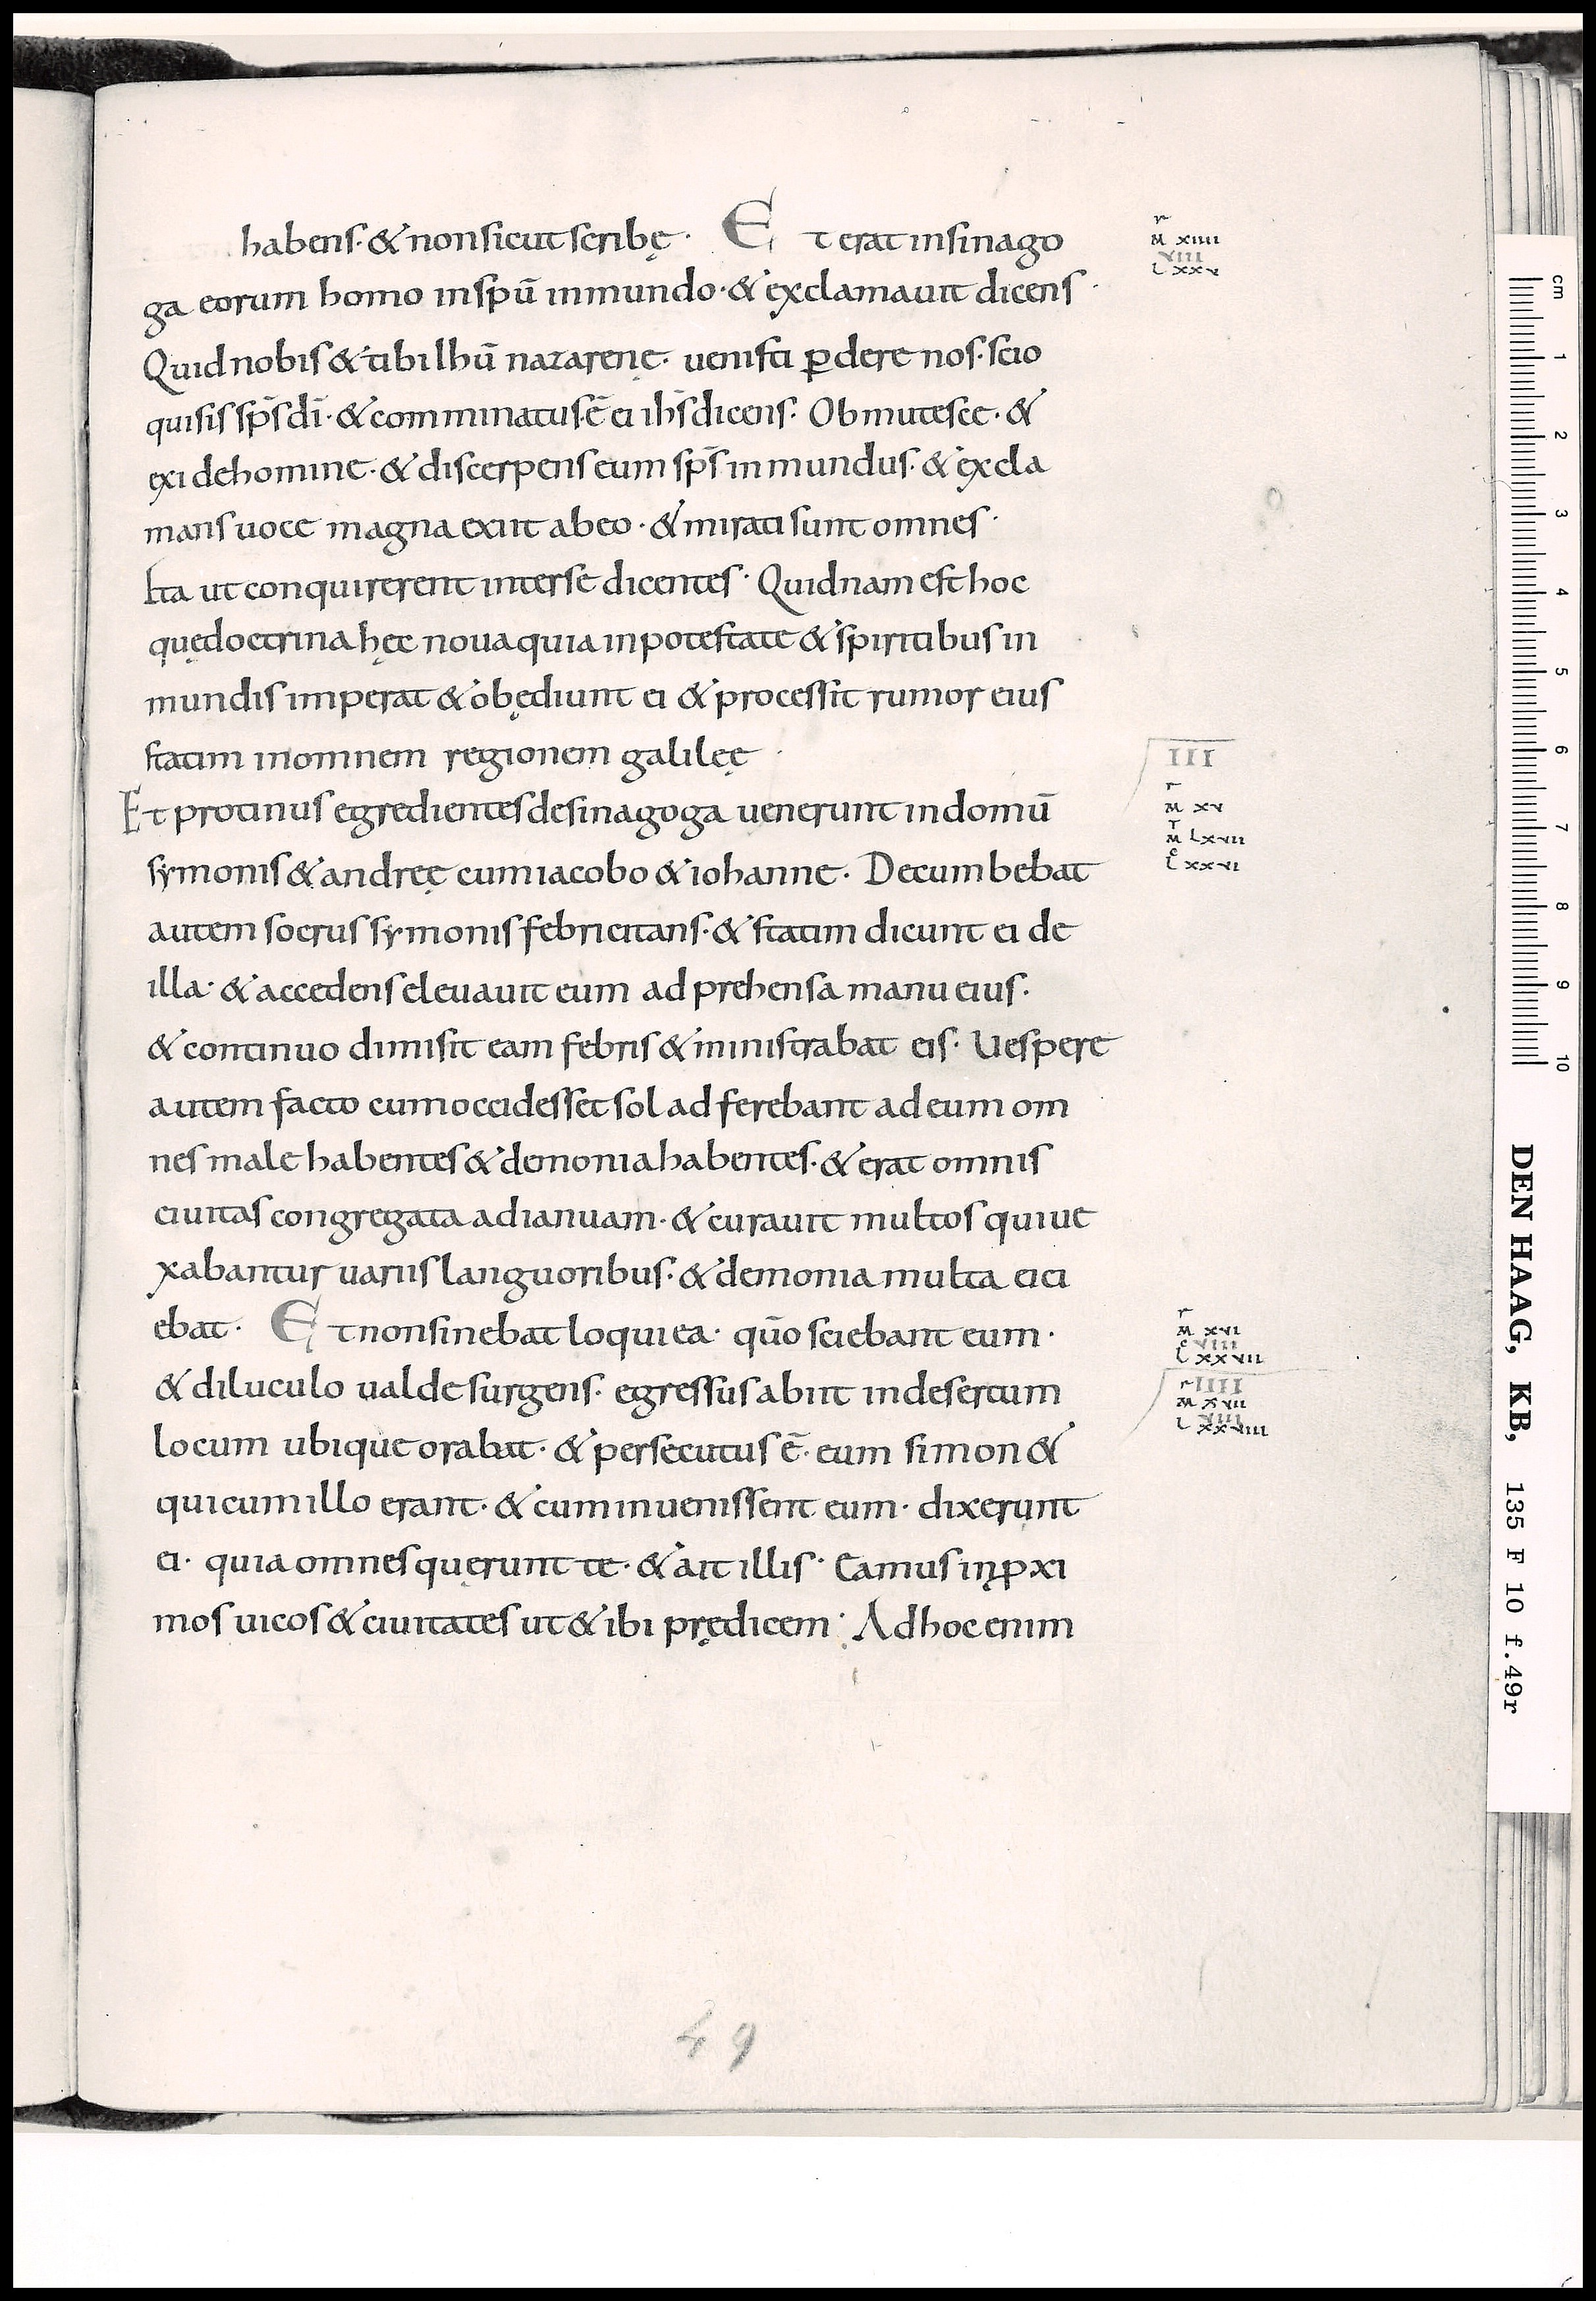 habens· & non sicut scribę· Et erat insinago
ga eorum homo inspū inmundo· & exclamauit dicens·
Quid nobis & tibi Ihū nazarenę· uenisti ꝑdere nos· scio
qui sis sp̄s dī· & comminatus ē ei ih̄s dicens· Obmutesce· &
exi dehomine· & discerpens eum sp̄s inmundus· & excla
mans uoce magna exiit abeo· & mirati sunt omnes·
Ita ut conquirerent interse dicentes· Quidnam est hoc
quędoctrina hęc noua quia inpotestate & spiritibus in
mundis imperat & obędiunt ei & processit rumor eius
statim inomnem regionem galileę·
Et protinus egredientes desinagoga uenerunt indomū
symonis & andreę cum iacobo & iohanne· Decumbebat
autem socrus symonis febricitans· & statim dicunt ei de
illa· & accedens eleuauit eum adprehensa manu eius·
& continuo dimisit eam febris & ministrabat eis· Uespere
autem facto cum occidesset sol adferebant ad eum om
nes male habentes & demonia habentes· & erat omnis
ciuitas congregata adianuam· & curauit multos qui ue
xabantur uariis languoribus· & demonia multa eici
ebat· Et non sinebat loqui ea· qūo sciebant eum·
& diluculo ualde surgens· egressus abiit indesertum
locum ubique orabat· & persecutus ē· eum simon &
qui cum illo erant· & cum inuenissent eum· dixerunt
ei· quia omnes quęrunt te· & ait illis· Eamus inꝓxi
mos uicos & ciuitates ut & ibi prędicem· Ad hoc enim
r
M XIIII
VIII
L XXV
III
r
M XV
T
M LXVII
c
L XXVI
r
M XVI
c VIII
L XXVII
r IIII
M XVII
VIII
L XXVIII
49
cm 1 2 3 4 5 6 7 8 9 10
DEN HAAG, KB, 135 F 10 f.49r